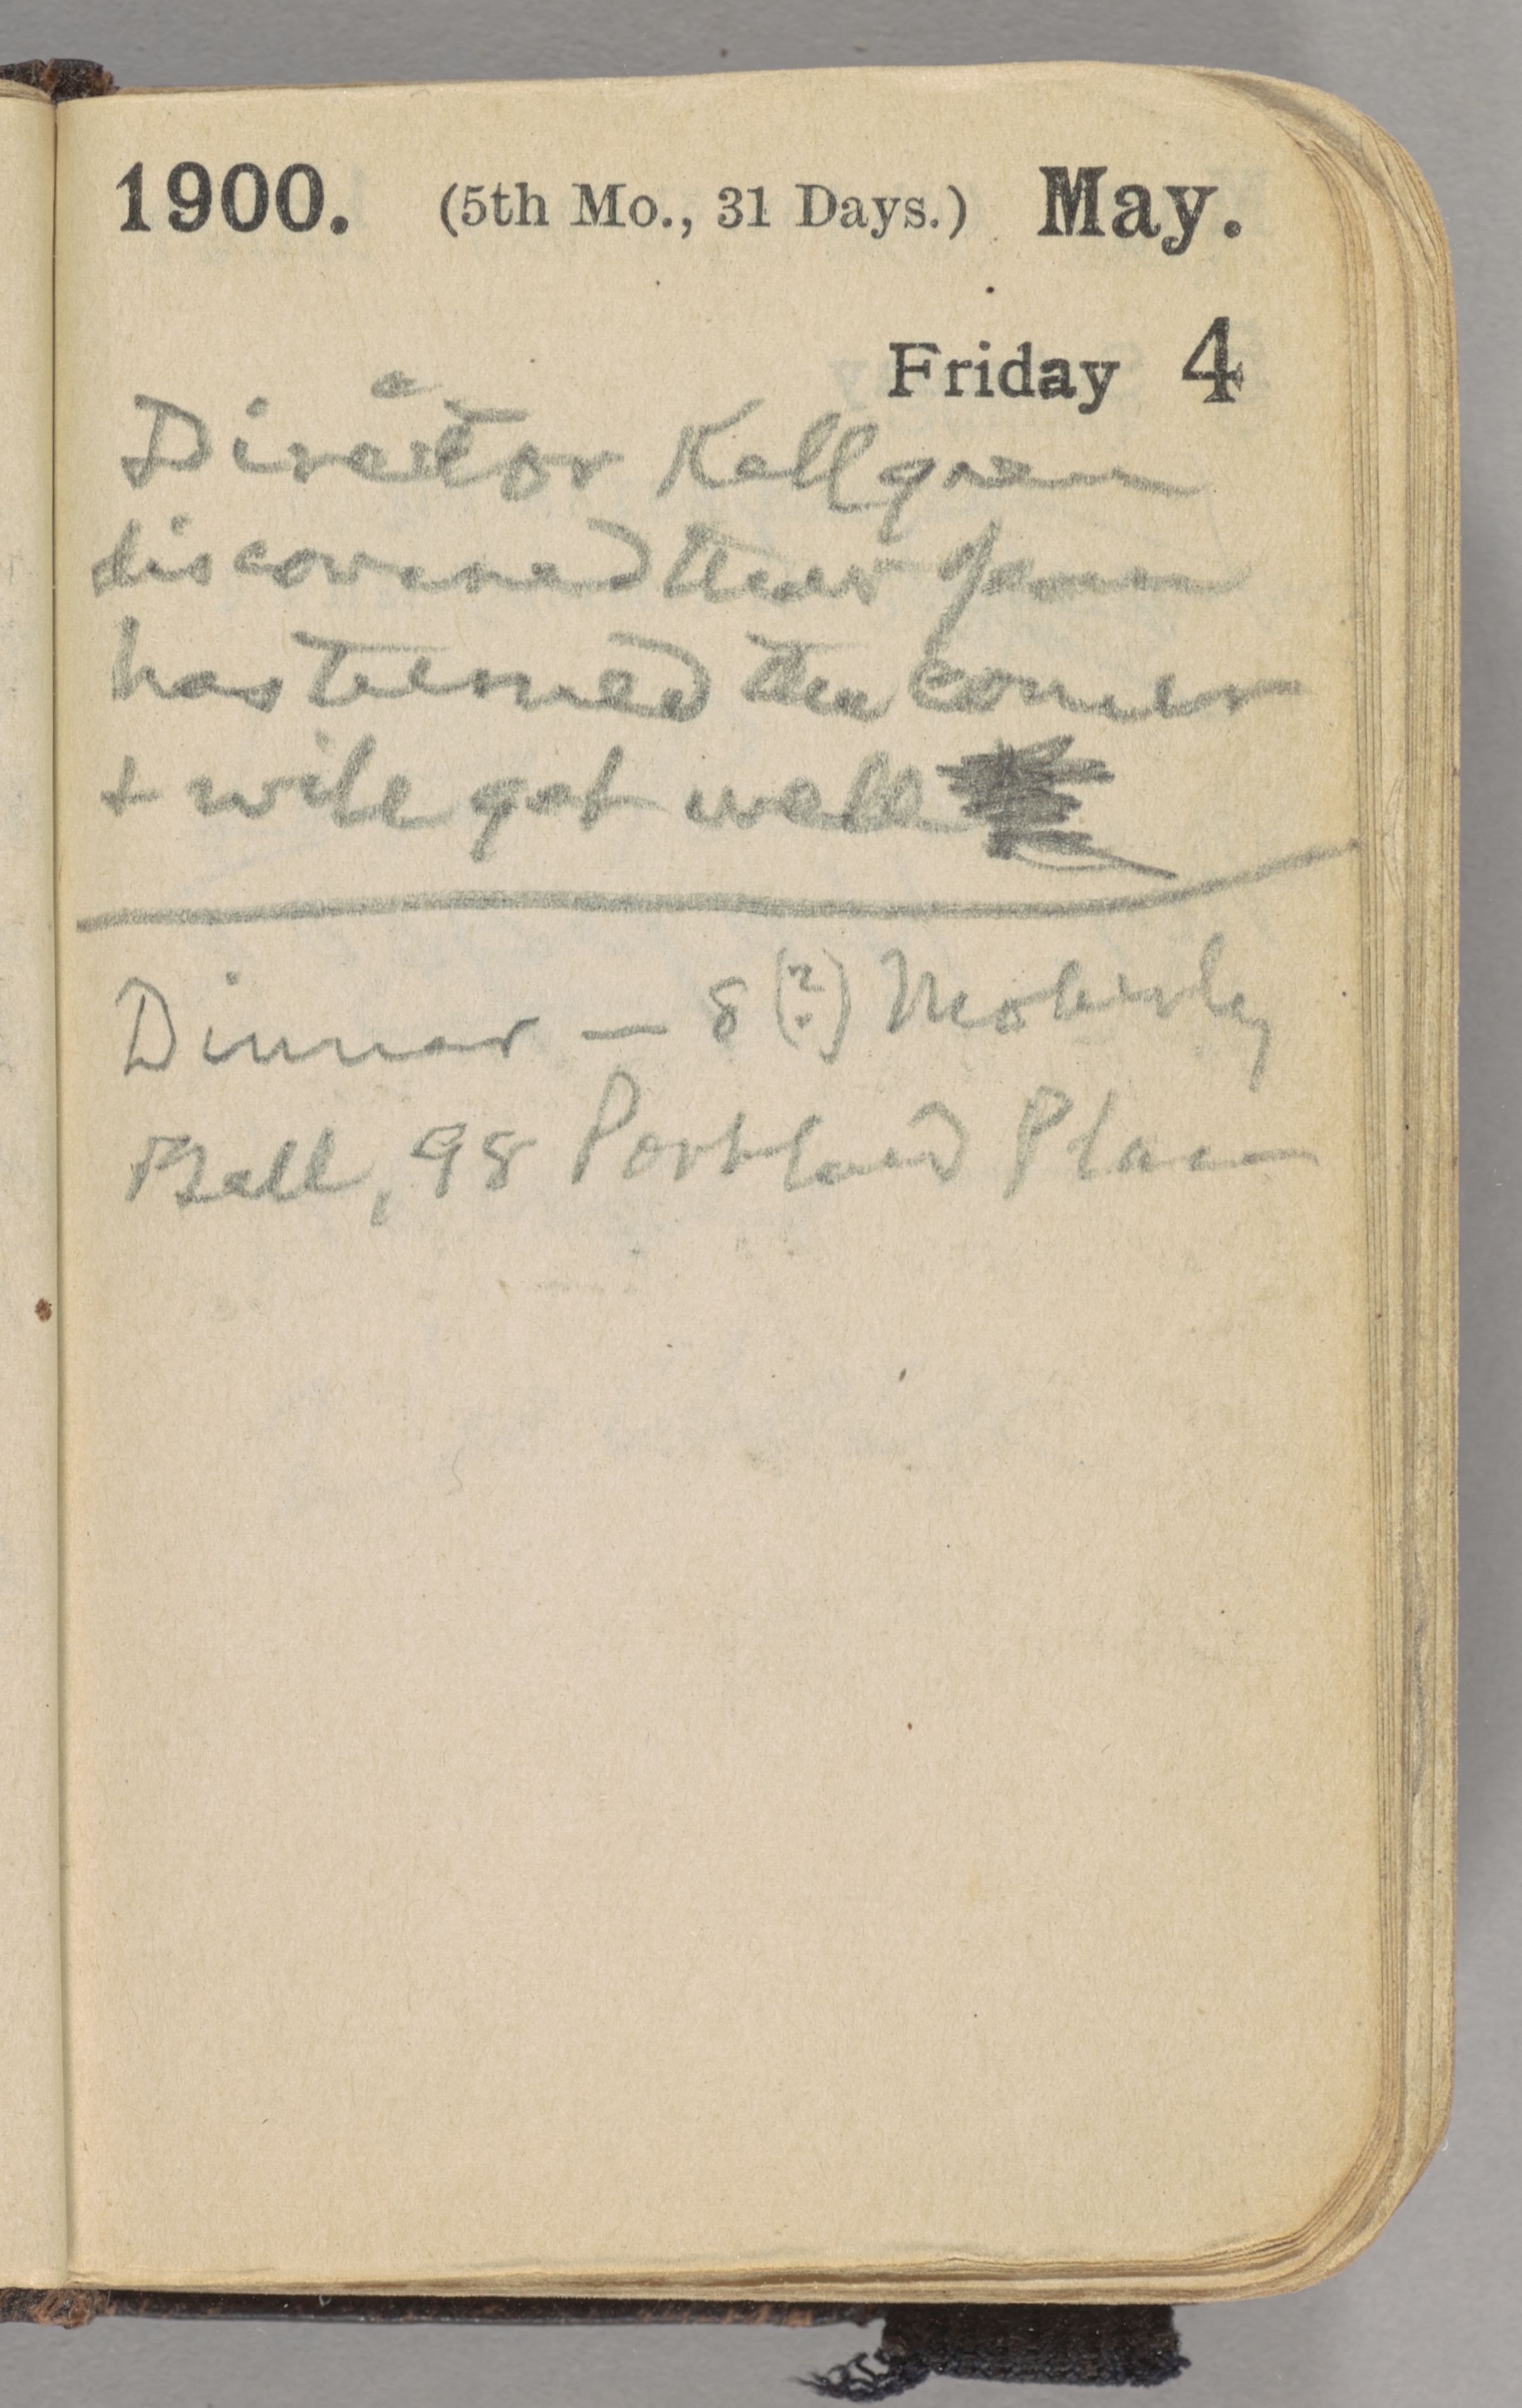 1900. (5th Mo., 31 Days.) May.
Friday 4
Director Kellgren
discovered that Jean
has turned the corner
& will get well
Dinner — 8 (?) Moberly
Bell, 98 Portland Place